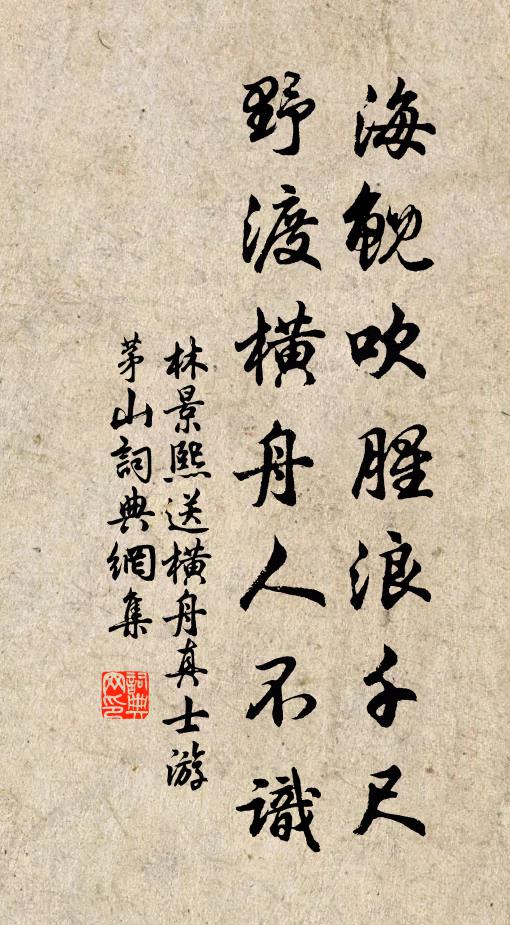 海鯢吹腥浪千尺
野渡橫舟人不識
林景熙送橫舟真士游
茅山詞典網集
詞典網印